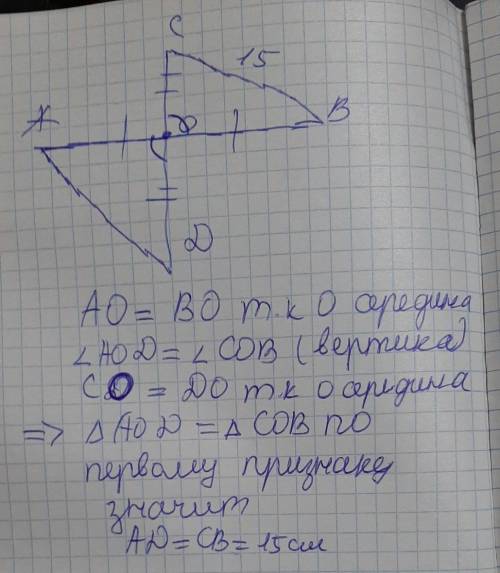 C
15
A
O
B
D
AO = BO т.к О середина
∠AOD = ∠COB (вертика)
CO = DO т.к О середина
=> △AOD = △COB по
первому признаку
значит
AD = CB = 15 см